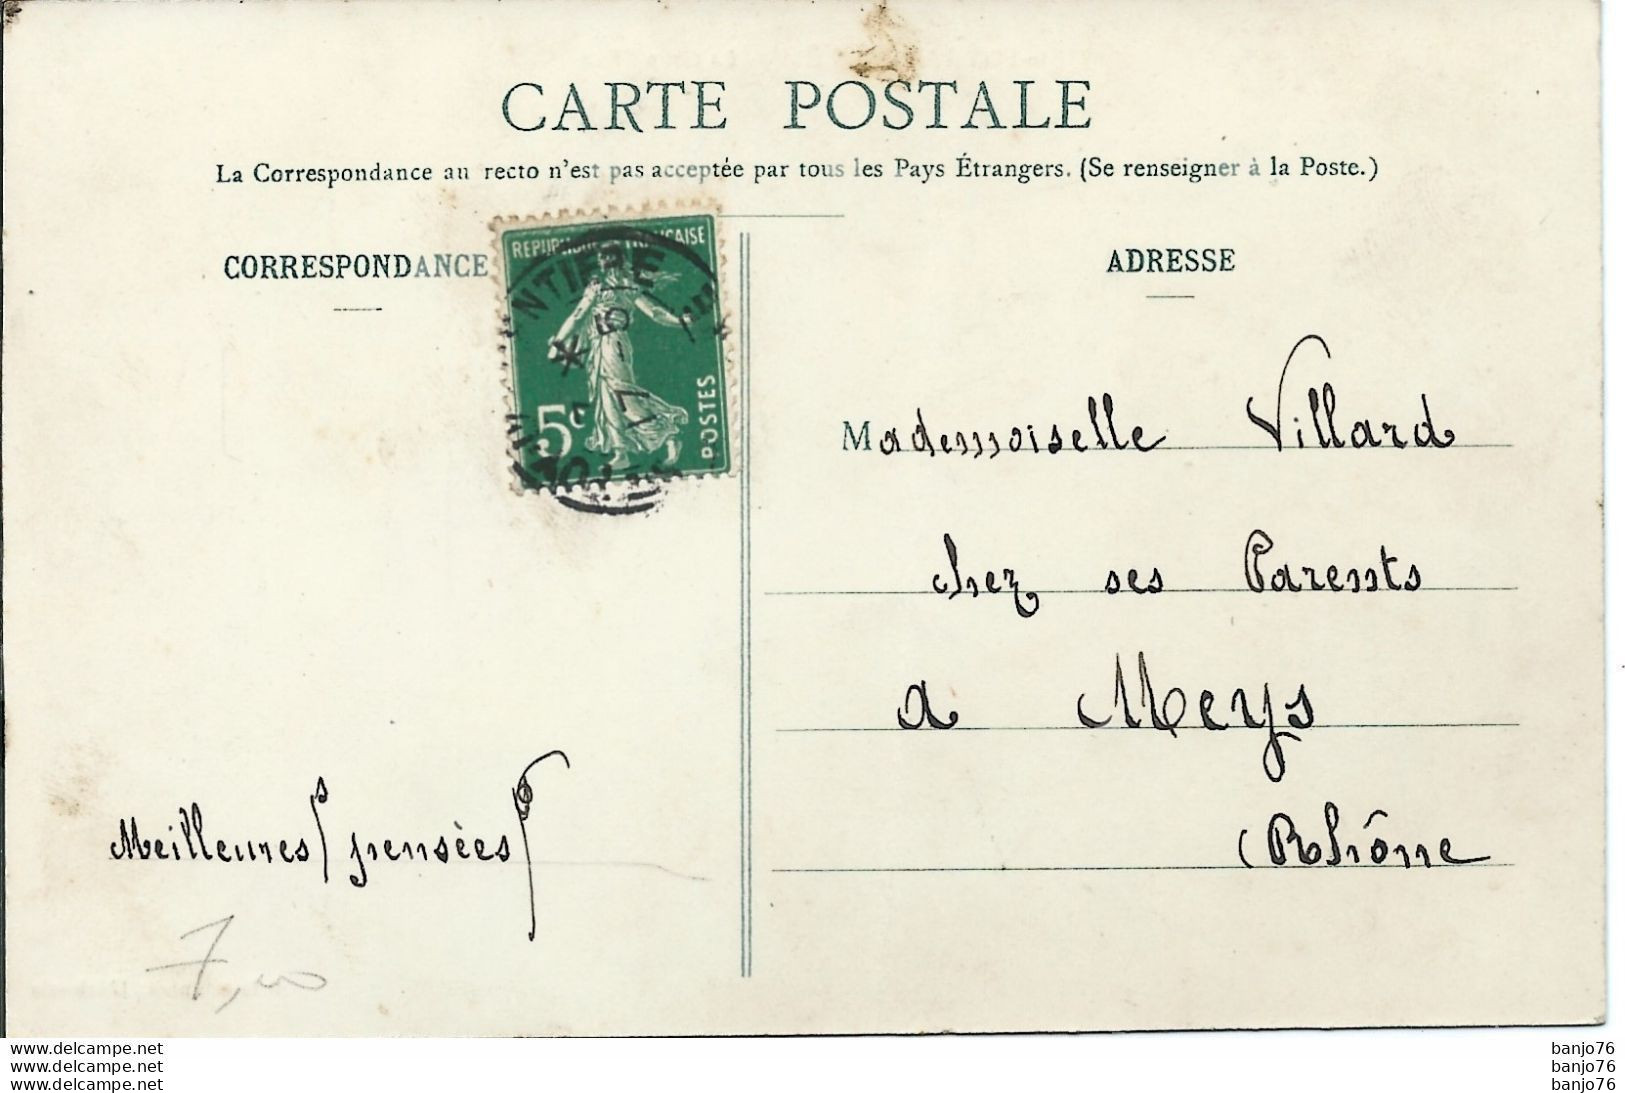 CARTE POSTALE
La Correspondance au recto n'est pas acceptée par tous les Pays Étrangers. (Se renseigner à la Poste.)
CORRESPONDANCE
ADRESSE
REPUBLIQUE FRANÇAISE
5c
POSTES
Mademoiselle Villard
chez ses Parents
a Meys
(Rhône
Meilleures pensées
7,00
www.delcampe.net
www.delcampe.net
www.delcampe.net
banjo76
banjo76
banjo76